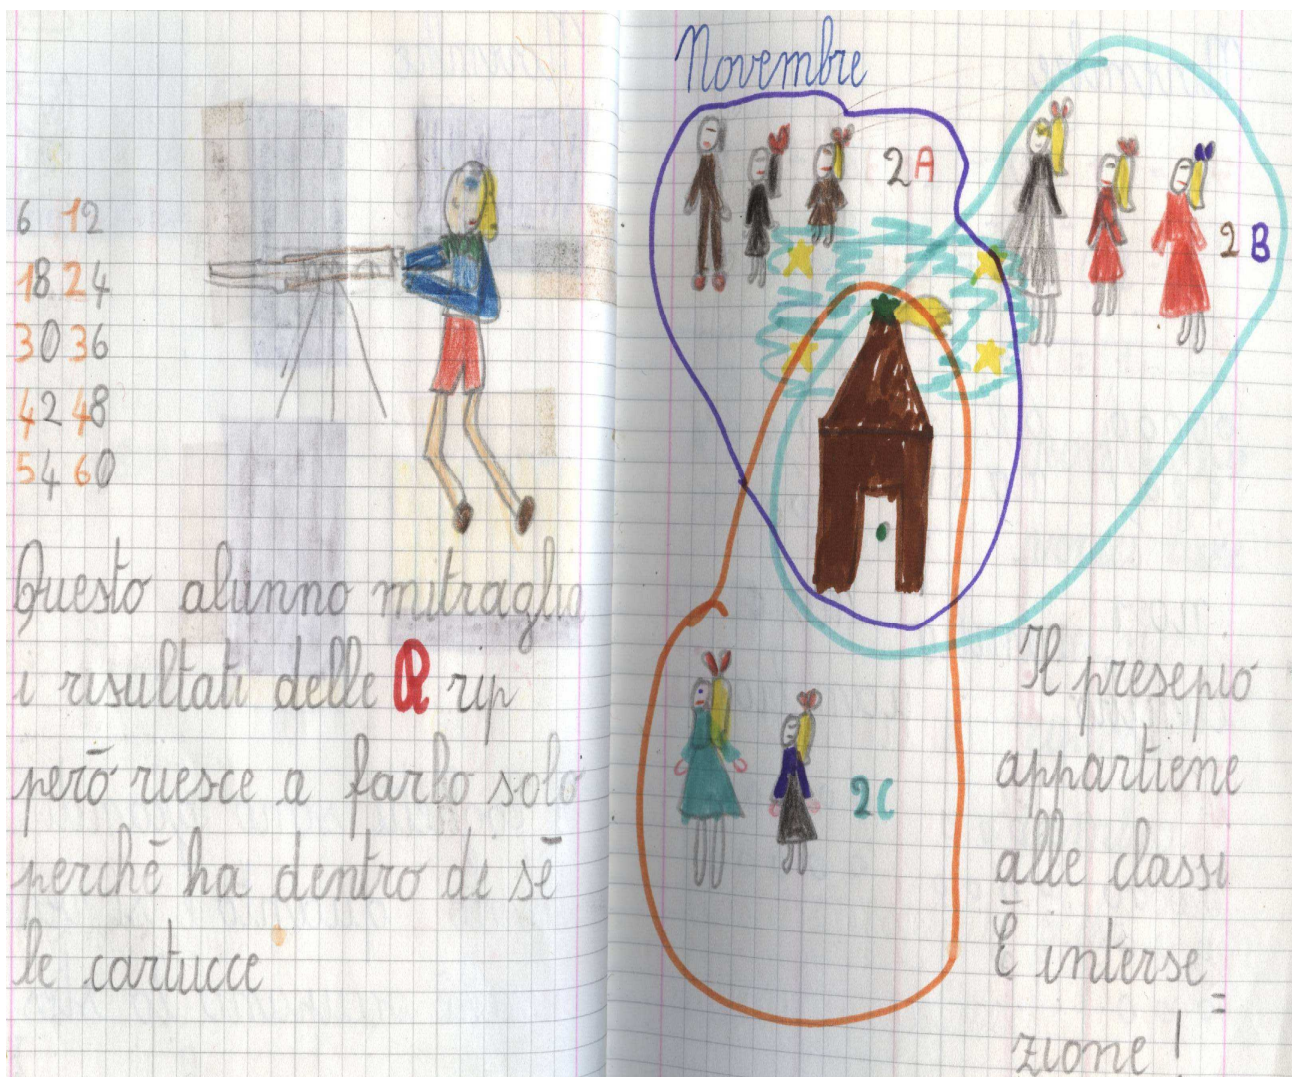 6 12
18 24
30 36
42 48
54 60
Questo alunno mitraglia
i risultati delle R rip
però riesce a farlo solo
perchè ha dentro di sé
le cartucce
Novembre
2A
2B
2C
Il presepio
appartiene
alle classi
È interse=
zione!